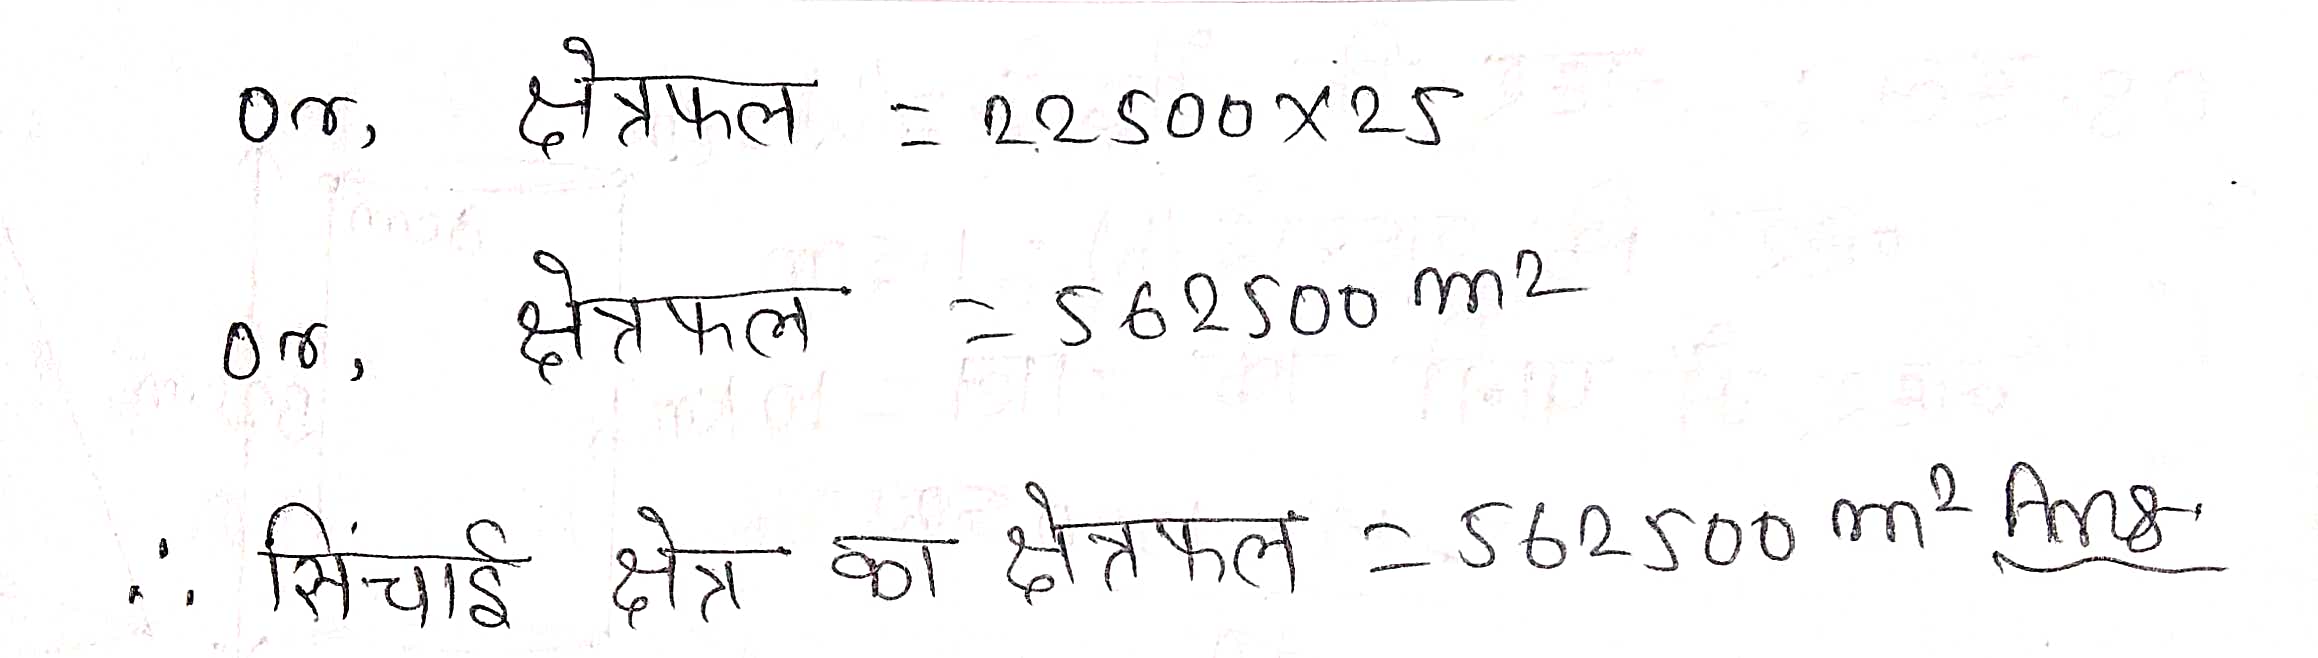 or, क्षेत्रफल = 22500×25
or, क्षेत्रफल = 562500 m²
∴ सिंचाई क्षेत्र का क्षेत्रफल = 562500 m² Ans